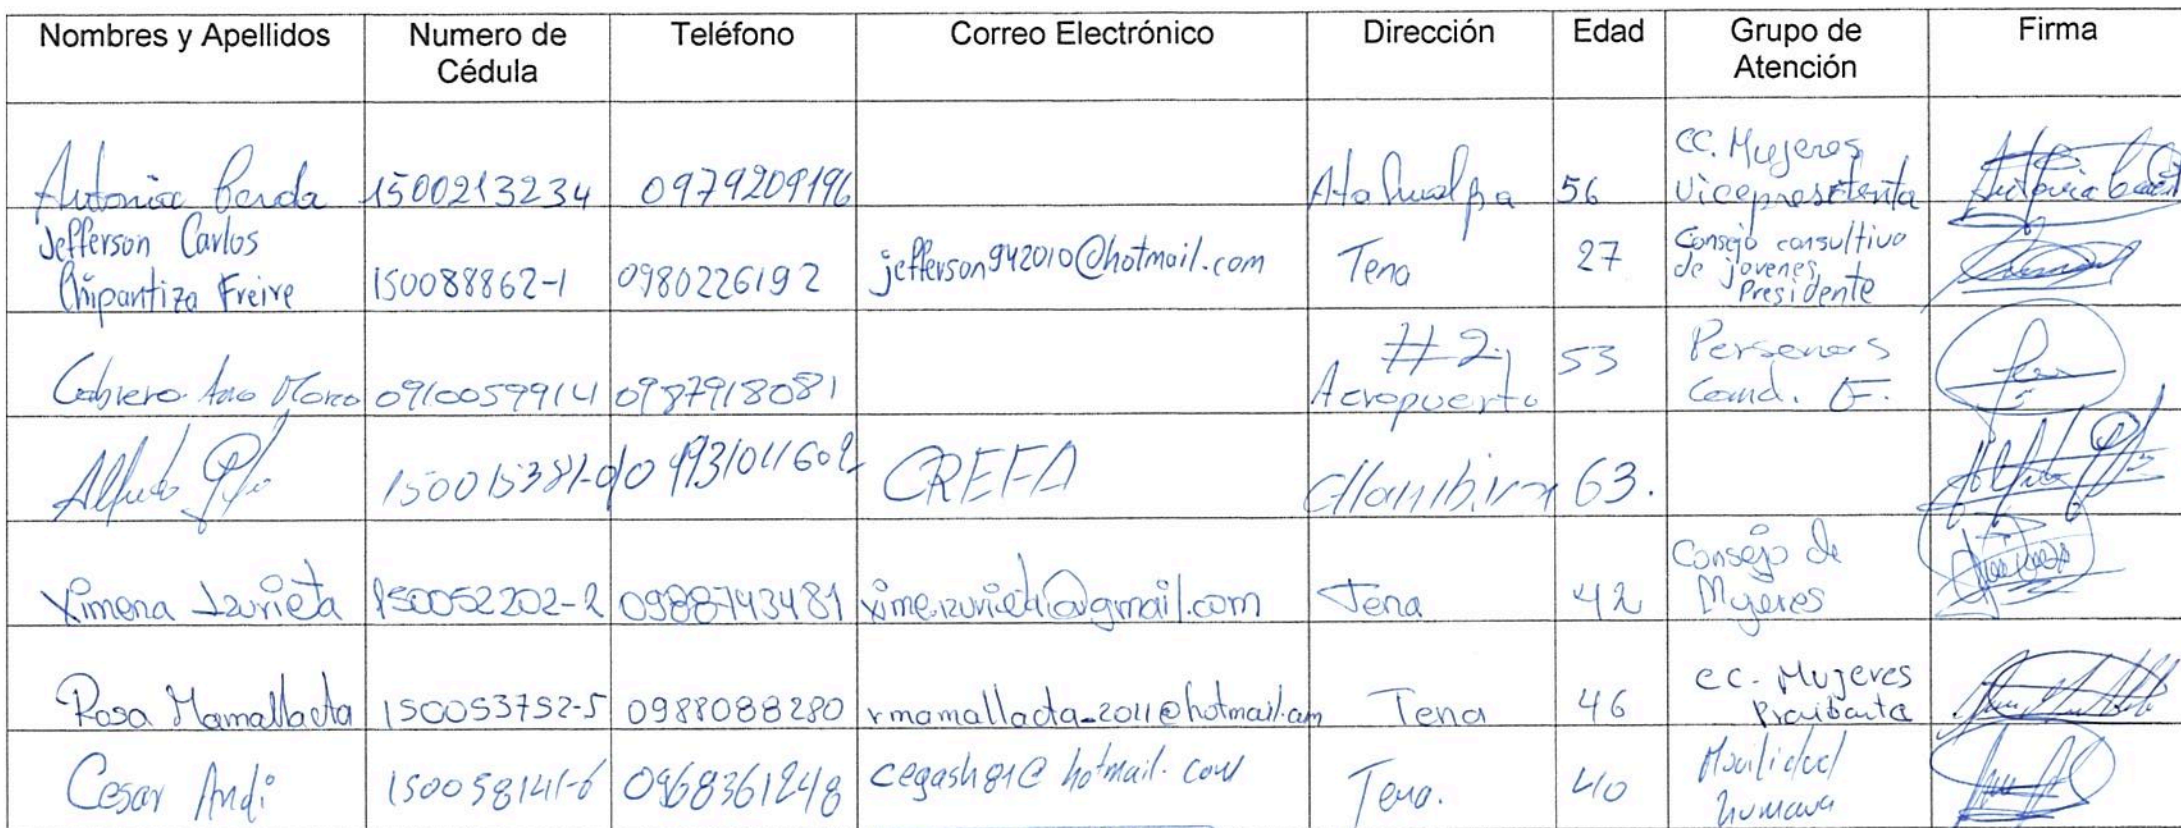 Nombres y Apellidos Numero de Cédula Teléfono Correo Electrónico Dirección Edad Grupo de Atención Firma
Antonia Cerda 1500213234 0979209196 Atahualpa 56 CC. Mujeres Vicepresidenta
Jefferson Carlos Chipantiza Freire 150088862-1 0980226192 jefferson942010@hotmail.com Tena 27 Consejo consultivo de jovenes, Presidente
0910059914 0987918081 #2 Aeropuerto 53 Personas
Alfredo CREFA 63.
Ximena Izurieta 150052202-2 0988743481 Tena 42 Consejo de Mujeres
Rosa Mamallacta 150053752-5 0988088280 rmamallacta-2011@hotmail.com Tena 46 CC. Mujeres
Cesar Andi 150058141-6 0968361248 cegash81@hotmail.com Tena. 40 Movilidad humana